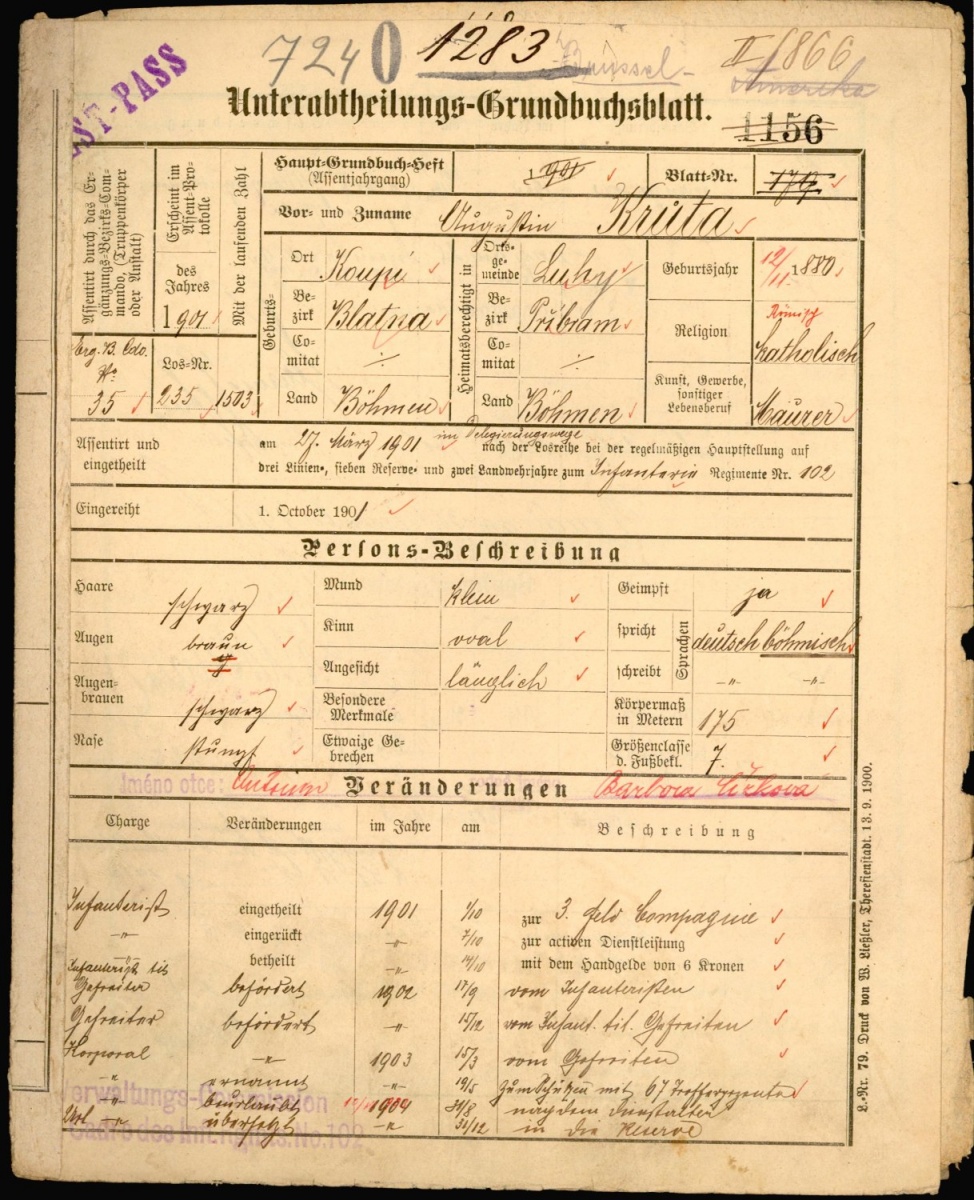 7240 1283 Brüssel II/1866
ST-PASS Amerika
Unterabtheilungs-Grundbuchsblatt.
1156
Assentirt durch das Ergänzungs-Bezirks-Commando, (Truppenkörper oder Anstalt)
Erscheint im Assent-Protokolle
des Jahres
1901
Mit der laufenden Zahl
Erg. B. Cdo. No 35
Los-Nr.
235
1503
Haupt-Grundbuch-Heft
(Assentjahrgang)
1901
Blatt-Nr.
Vor- und Zuname Augustin Kruta
Geburts-
Ort Koupi
Bezirk Blatna
Comitat ÷
Land Böhmen
Heimatsberechtigt in
Ortsgemeinde Luhy
Bezirk Přibram
Comitat ÷
Land Böhmen
Geburtsjahr 12/11 1880
Religion Römisch katholisch
Kunst, Gewerbe, sonstiger Lebensberuf Maurer
Assentirt und eingetheilt
am 27. März 1901 im Delegierungswege nach der Losreihe bei der regelmäßigen Hauptstellung auf
drei Linien-, sieben Reserve- und zwei Landwehrjahre zum Infanterie Regimente Nr. 102
Eingereiht 1. October 1901
Persons-Beschreibung
Haare schwarz
Augen braun
Augenbrauen schwarz
Nase stumpf
Mund klein
Kinn oval
Angesicht länglich
Besondere Merkmale
Etwaige Gebrechen
Geimpft ja
spricht Sprachen deutsch böhmisch
schreibt -"- -"-
Körpermaß in Metern 175
Größenclasse d. Fußbekl. 7.
Jméno otce: Antonín Veränderungen Barbora Čirkova
Charge Veränderungen im Jahre am Beschreibung
Infanterist eingetheilt 1901 1/10 zur 3. Feld Compagnie
-"- eingerückt -"- 7/10 zur activen Dienstleistung
-"- betheilt -"- 14/10 mit dem Handgelde von 6 Kronen
Infanterist tit. Gefreiter befördert 1902 17/9 vom Infanteristen
Gefreiter befördert -"- 15/12 vom Infant. tit. Gefreiten
Korporal -"- 1903 15/3 vom Gefreiten
-"- ernannt -"- 19/5 zum Schützen mit 67 Trefferprozenten
-"- beurlaubt 1904 31/8 nach dem Dienstalter
Url. -"- übersetzt -"- 31/12 in die Reserve
erwaltungs-Commission
No. 102
L.-Nr. 79. Druck von W. Ließler, Theresienstadt. 13. 9. 1900.